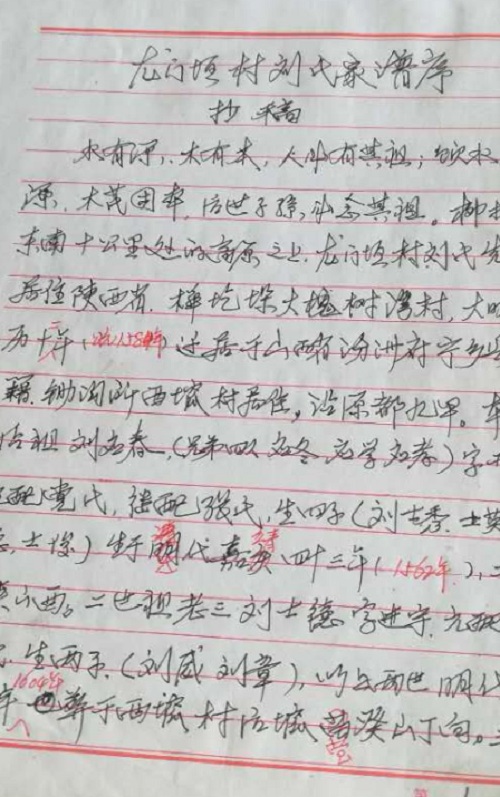 龙门垣村刘氏家谱序
抄稿
水有源,木有本,人亦有其祖;饮水
源,木茂固本,后世子孙,永念其祖。柳
东南十公里处的高原之上,龙门垣村刘氏先
居住陕西省,桦圪垛大槐树湾村,大明
历十年(1584年)迁居于山西省汾州府宁乡
籍,锄沟所西坡村居住,沿原都九甲。
始祖刘应春,(兄弟四人应冬应学应孝)字
元配党氏,继配张氏,生四子(刘士秀士英
士俊)生于明代嘉靖四十三年(1562年),二
山西。二世祖老三刘士德字进宇,元配
生两子,(刘威刘章),以上两世明代
1604年
年葬于西坡村后坡茔癸山丁向。